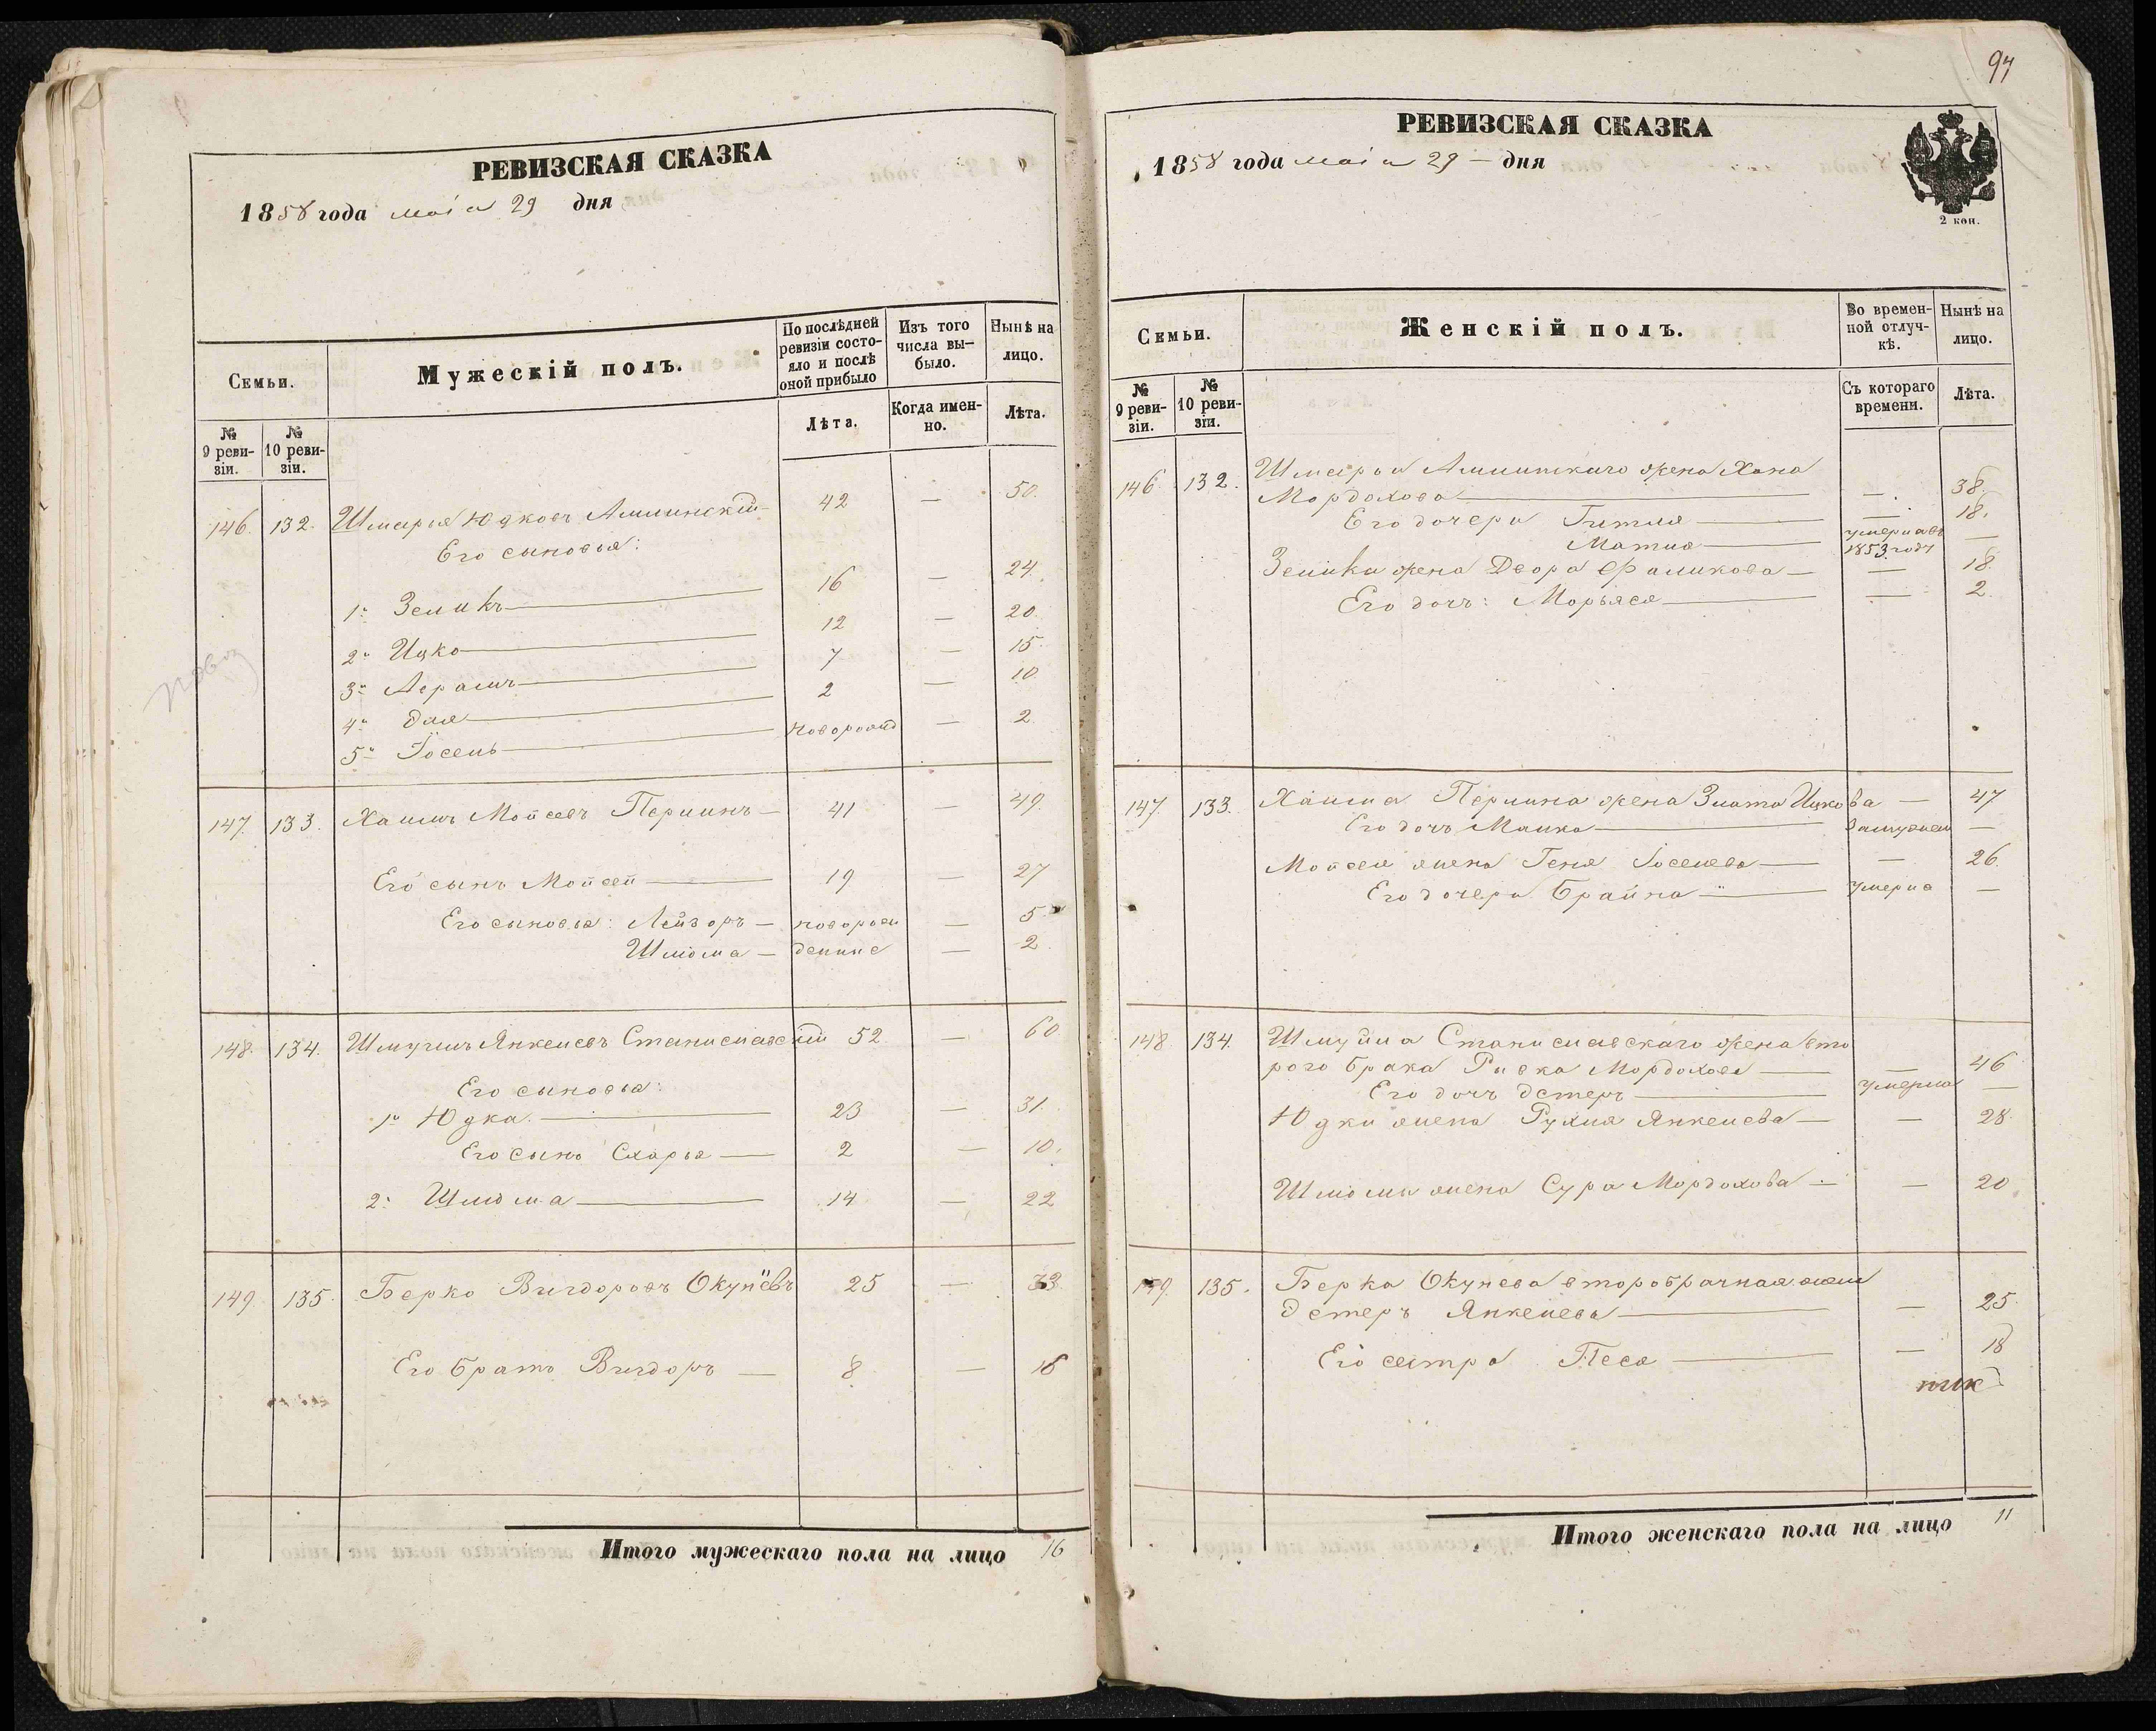 РЕВИЗСКАЯ СКАЗКА
1858 года маiя 29 дня
Семьи.
Мужескій полъ.
По послѣдней ревизіи состо-
яло и послѣ
оной прибыло
Изъ того
числа вы-
было.
Нынѣ на
лицо.
№
9 реви-
зіи.
№
10 реви-
зіи.
Лѣта.
Когда имен-
но.
Лѣта.
146. 132. Шмерья Юдковъ 42 — 50.
Его сыновья:
1й Зеликъ — 16 — 24.
2й Ицко — 12 — 20.
3й Абрамъ — 7 — 15.
4й Эля — 2 — 10.
5й Іосель — новорожд — 2.
147. 133. Хаимъ Мойсеевъ Перминъ — 41 — 49.
Его сынъ Мойсей — 19 — 27
Его сыновья: Лейзоръ — новорож — 5
Шлома — денные — 2.
148. 134. Шмуилъ Янкелевъ Станиславскій 52 — 60
Его сыновья:
1й Юдка. — 23 — 31.
Его сынъ Схарья — 2 — 10.
2й Шлома — 14 — 22
149. 135. Берко Вигдоровъ Окунёвъ 25 — 33.
Его братъ Вигдоръ — 8 — 16
Итого мужескаго пола на лицо 16
97
РЕВИЗСКАЯ СКАЗКА
1858 года маiя 29 — дня
2 коп.
Семьи.
Женскій полъ.
Во времен-
ной отлуч-
кѣ.
Нынѣ на
лицо.
№
9 реви-
зіи.
№
10 реви-
зіи.
Съ котораго
времени.
Лѣта.
146. 132. Шмерьи жена Хана
Мордохова — — 38.
Его дочери Гитля — — 18.
Матля — умерла въ 1853 году —
Зелика жена Двора Фаликова — — 18.
Его дочь: Морьяся — — 2.
147. 133. Хаима Пермина жена Злата Ицкова — 47
Его дочь Малка — замужем —
Мойсея жена Геня Іоселева — — 26.
Его дочери Брайна — умерла —
148. 134. Шмуйла Станиславскаго жена вто
рого брака Ривка Мордохова — — 46
Его дочь Эстеръ — умерла —
Юдки жена Рухля Янкелева — — 28.
Шломы жена Сура Мордохова — — 20
149. 135. Берка Окунева второбрачная жена
Эстеръ Янкелева — — 25
Его сестра Песя — — 18
Итого женскаго пола на лицо 11